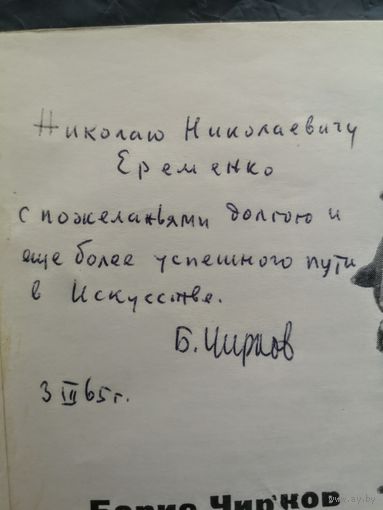 Николаю Николаевичу
Еременко
с пожеланьями долгого и
еще более успешного пути
в Искусстве.
Б. Чирков
3 III 65 г.
Борис Чирков
www.ay.by